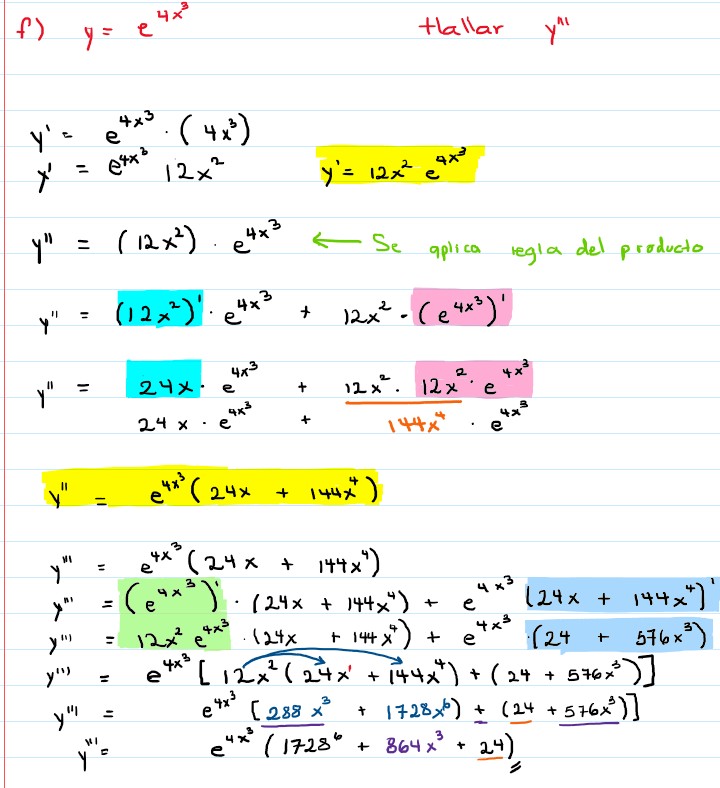 f) y = e^{4x^3} Hallar y'''
y' = e^{4x^3} · (4x^3)
y' = e^{4x^3} 12x^2 y' = 12x^2 e^{4x^3}
y'' = (12x^2) · e^{4x^3} ← Se aplica regla del producto
y'' = (12x^2)' · e^{4x^3} + 12x^2 · (e^{4x^3})'
y'' = 24x · e^{4x^3} + 12x^2 · 12x^2 · e^{4x^3}
24x · e^{4x^3} + 144x^4 · e^{4x^3}
y'' = e^{4x^3} (24x + 144x^4)
y''' = e^{4x^3} (24x + 144x^4)
y''' = (e^{4x^3})' · (24x + 144x^4) + e^{4x^3} (24x + 144x^4)'
y''' = 12x^2 e^{4x^3} · (24x + 144x^4) + e^{4x^3} · (24 + 576x^3)
y''' = e^{4x^3} [12x^2 (24x' + 144x^4) + (24 + 576x^3)]
y''' = e^{4x^3} [288x^3 + 1728x^6) + (24 + 576x^3)]
y''' = e^{4x^3} (1728^6 + 864x^3 + 24)